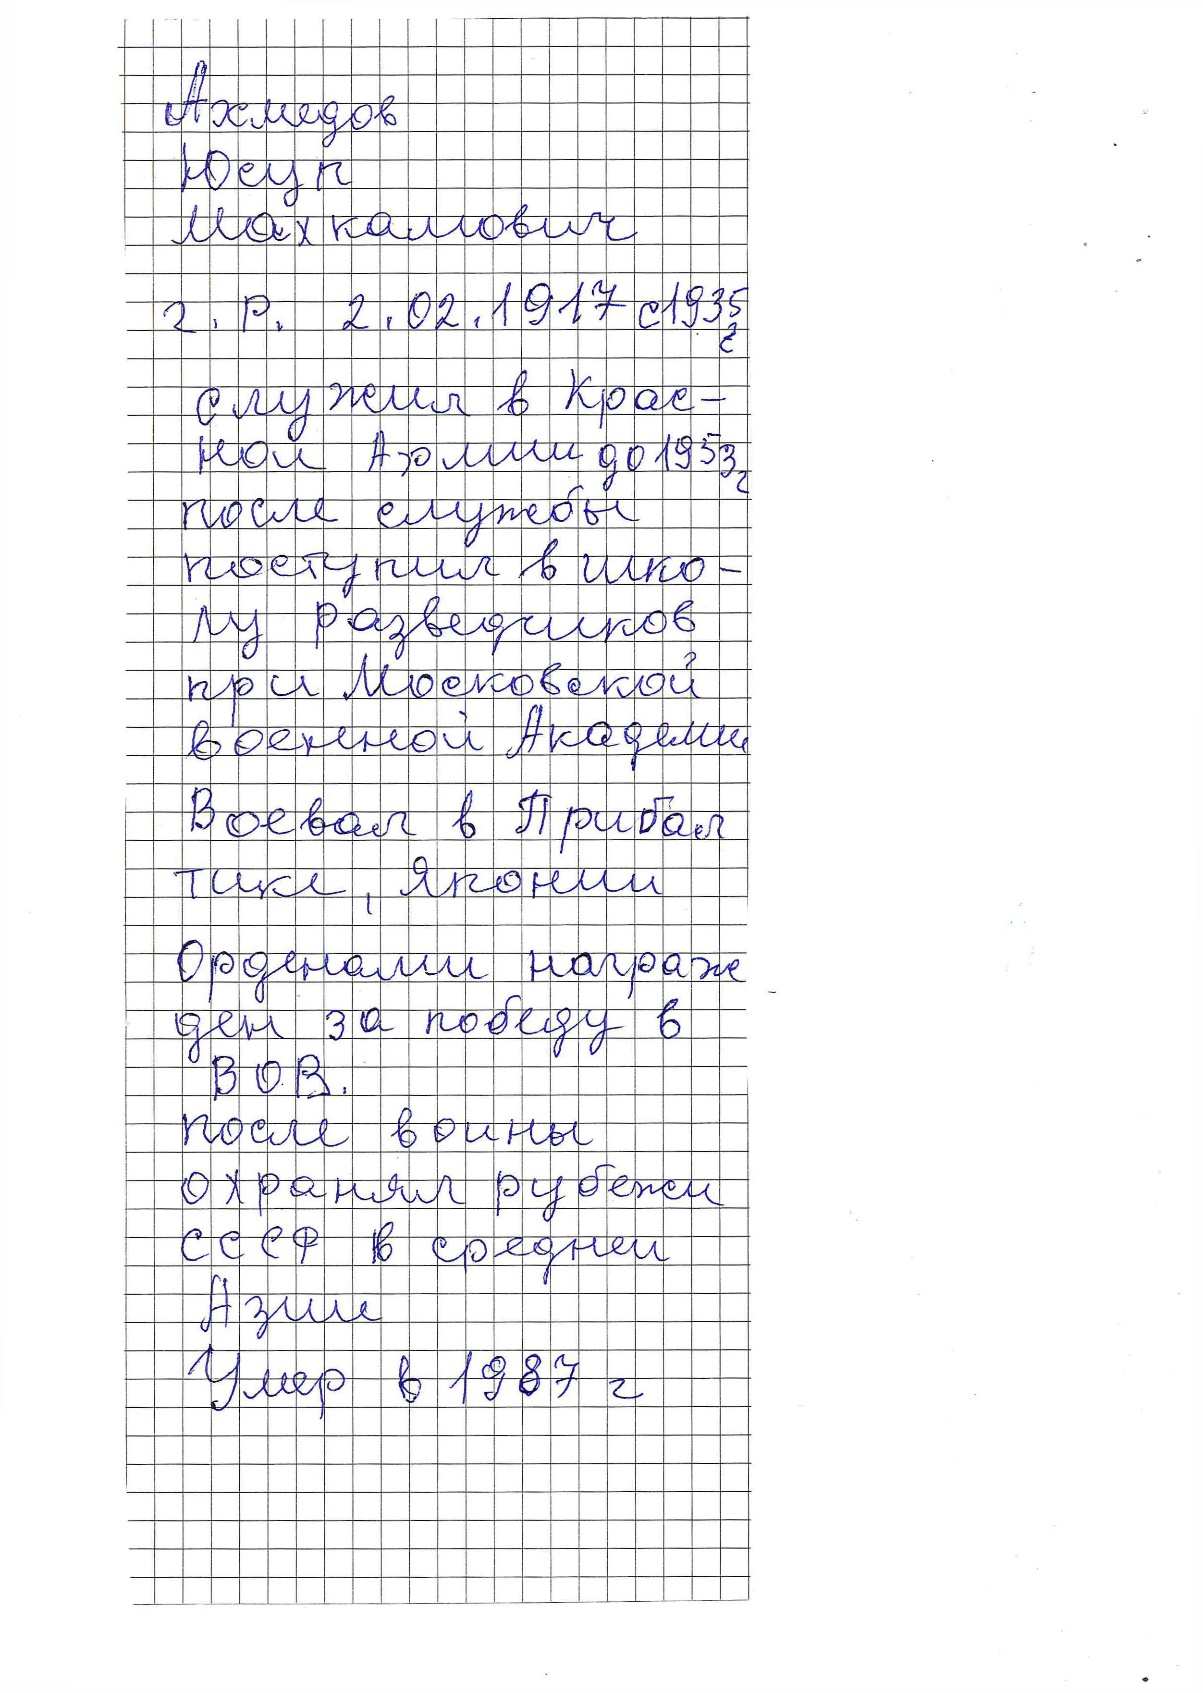 Ахмедов
Юсуп
Махкамович
г. р. 2.02.1917 с 1935
г
служил в Крас-
ной Армии до 1953г
после службы
поступил в шко-
лу разведчиков
при Московской
военной Академии
Воевал в Прибал
тике, Японии
Орденами награж
ден за победу в
ВОВ.
после воины
охранял рубежи
СССР в средней
Азии
Умер в 1987 г